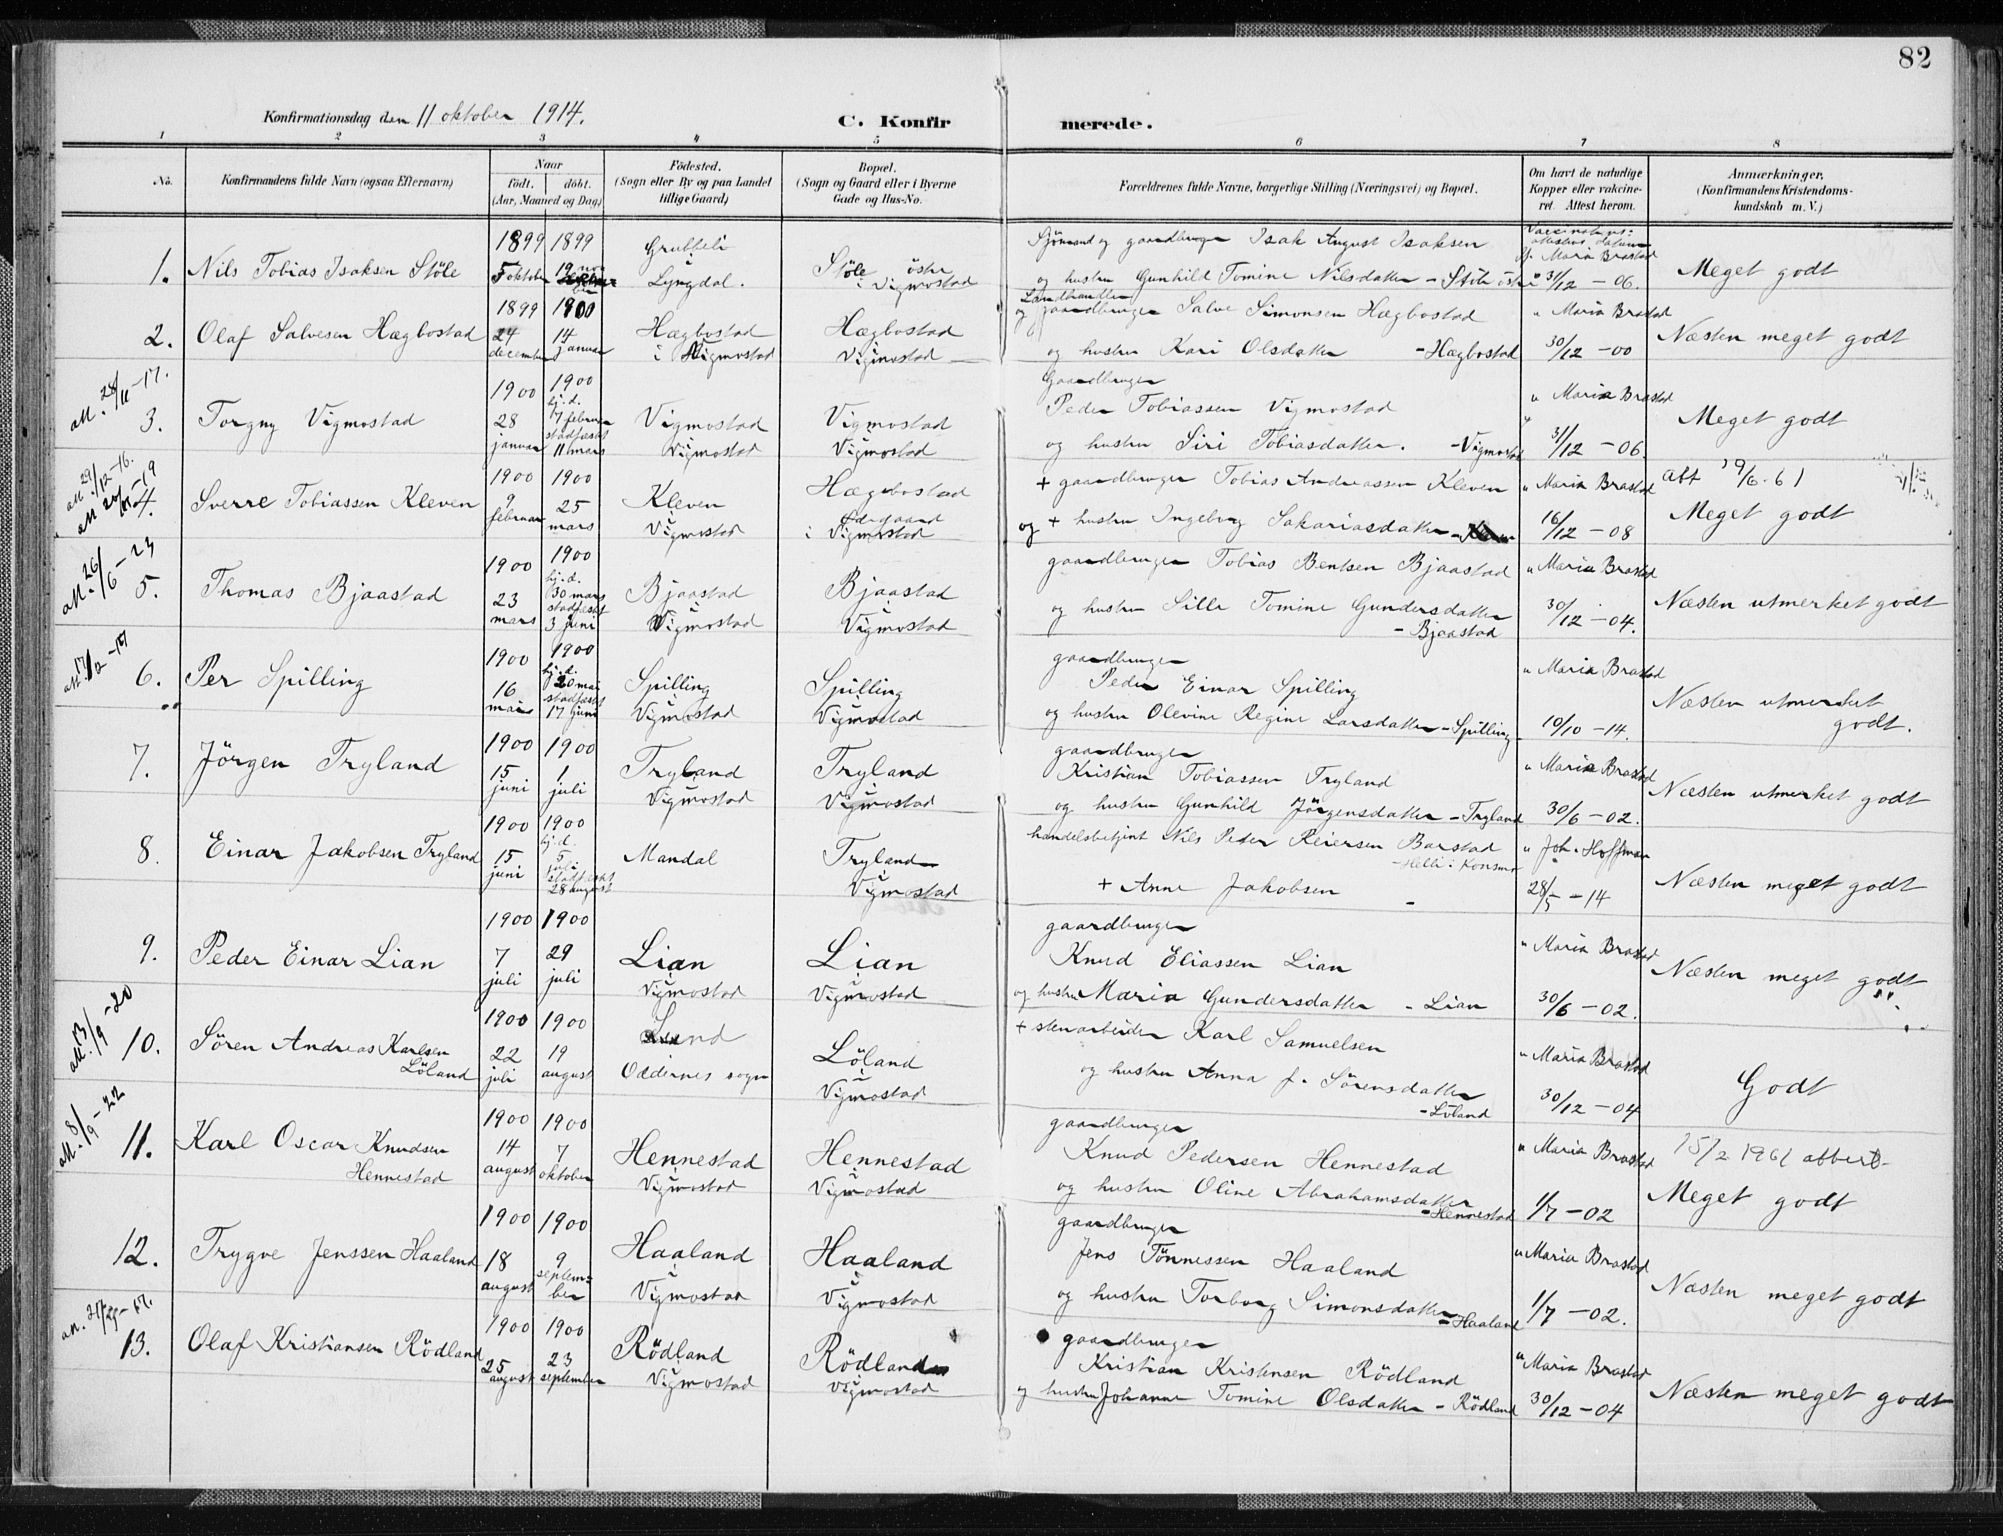 82
Konfirmationsdag den 11 oktober 1914.
C. Konfirmerede.
1 2 3 4 5 6 7 8
No.
Konfirmandens fulde Navn (ogsaa Efternavn)
Naar
födt. döbt.
(Aar, Maaned og Dag)
Födested.
(Sogn eller By og paa Landet
tillige Gaard)
Bopæl.
(Sogn og Gaard eller i Byerne
Gade og Hus-No.
Forældrenes fulde Navne, borgerlige Stilling (Næringsvei) og Bopæl.
Om havt de naturlige
Kopper eller vakcine-
ret. Attest herom.
Anmærkninger.
(Konfirmandens Kristendoms-
kundskab m. V.)
1. Nils Tobias Isaksen Stöle
1899 5 oktober
1899 19 nov
Lyngdal
Stöle östre i Vigmostad
Sjömand og gaardbruger Isak August Isaksen
og hustru Gunhild Tomine Nilsdatter - Stöle östre
Maria Brastad
31/12 - 06.
Meget godt
2. Olaf Salvesen Hægbostad
1899 24 december
1900 14 januar
Hægbostad i Vigmostad
Hægbostad Vigmostad
Landhandler
og gaardbruger Salve Simonsen Hægbostad
og hustru Kari Olsdatter - Hægbostad
" Maria Brastad
30/12 - 00
Næsten meget godt
3. Torgny Vigmostad
1900 28 januar
1900 hj. d. 7 februar stadfæstet 11 mars
Vigmostad Vigmostad
Vigmostad Vigmostad
Gaardbruger
Peder Tobiassen Vigmostad
og hustru Siri Tobiasdatter. - Vigmostad
" Maria Brastad
31/12 - 06.
Meget godt
4. Sverre Tobiassen Kleven
1900 9 februar
1900 25 mars
Kleven Vigmostad
Hægbostad i Vigmostad
+ gaardbruger Tobias Andreassen Kleven
og + hustru Ingeborg Sakariasdatter
" Maria Brastad
16/12 - 08
att 19/6.61
Meget godt
att. 26/6 - 23
5. Thomas Bjaastad
1900 23 mars
1900 hj. d. 30 mars stadfæstet 3 juni
Bjaastad Vigmostad
Bjaastad Vigmostad
gaardbruger Tobias Bentsen Bjaastad
og hustru Sille Tomine Gundersdatter
- Bjaastad
" Maria Brastad
30/12 - 04.
Næsten utmerket godt
6. Per Spilling
1900 16 mai
1900 hj. d. 20 mai stadfæstet 17 juni
Spilling Vigmostad
Spilling Vigmostad
gaardbruger
Peder Einar Spilling
og hustru Olevine Regine Larsdatter - Spilling
" Maria Brastad
10/10 - 14.
Næsten utmerket
godt.
7. Jörgen Tryland
1900 15 juni
1900 1 juli
Tryland Vigmostad
Tryland Vigmostad
gaardbruger
Kristian Tobiassen Tryland
og hustru Gunhild Jörgensdatter - Tryland
" Maria Brastad
30/6 - 02.
Næsten utmerket godt
8. Einar Jakobsen Tryland
1900 15 juni
1900 hj. d. 5 juli stadfæstet 28 august
Mandal
Tryland Vigmostad
handelsbetjent Nils Peder Reiersen Barstad
- Helle i Konsmo
+ Anne Jakobsen -
" Joh. Hoffman
28/5 - 14
Næsten meget godt
9. Peder Einar Lian
1900 7 juli
1900 29 juli
Lian Vigmostad
Lian Vigmostad
gaardbruger
Knud Eliassen Lian
og hustru Maria Gundersdatter - Lian
" Maria Brastad
30/6 - 02.
Næsten meget godt
att. 13/9 - 20
10. Sören Andreas Karlsen
Löland
1900 22 juli
1900 19 august
Oddernes sogn
Löland Vigmostad
+ stenarbeider Karl Samuelsen
og hustru Anna f. Sörensdatter
- Löland
" Maria Brastad
30/12 - 04
Godt
att. 8/9 - 22
11. Karl Oscar Knudsen
Hennestad
1900 14 august
1900 7 oktober
Hennestad Vigmostad
Hennestad Vigmostad
gaardbruger
Knud Pedersen Hennestad
og hustru Oline Abrahamsdatter
- Hennestad
" Maria Brastad
1/7 - 02
15/2 1961
Meget godt
12. Trygve Jenssen Haaland
1900 18 august
1900 9 september
Haaland Vigmostad
Haaland Vigmostad
gaardbruger
Jens Tönnessen Haaland
og hustru Torborg Simonsdatter
- Haaland
" Maria Brastad
1/7 - 02.
Næsten meget godt
13. Olaf Kristiansen Rödland
1900 25 august
1900 23 september
Rödland Vigmostad
Rödland Vigmostad
gaardbruger
Kristian Kristensen Rödland
og hustru Johanne Tomine Olsdatter - Rödland
" Maria Brastad
30/12 - 04
Næsten meget godt